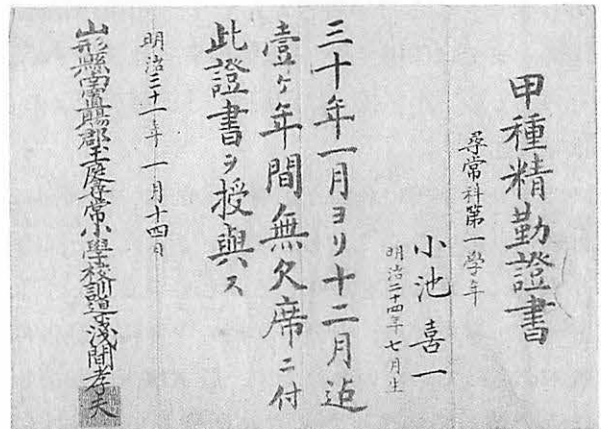 甲種精勤證書
尋常科第一學年
小池喜一
明治二十四年七月生
三十年一月ヨリ十二月迠
壹ケ年間無欠席ニ付
此證書ヲ授與ス
明治三十一年一月十四日
山形縣南置賜郡玉庭尋常小學校訓導浅間孝夫